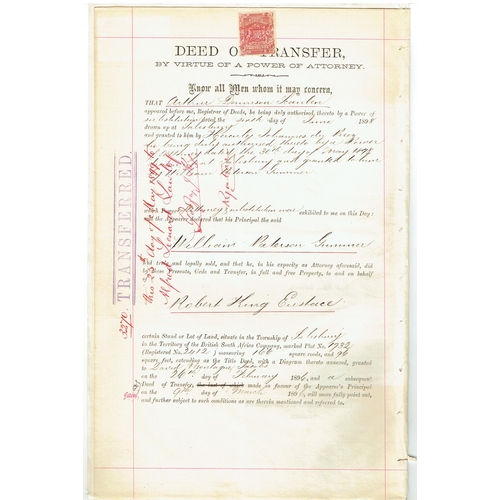 DEED OF TRANSFER,
BY VIRTUE OF A POWER OF ATTORNEY.
Know all Men whom it may concern,
THAT Arthur
appeared before me, Registrar of Deeds, he being duly authorised, thereto by a Power of
substitution dated the sixth day of June 1898
drawn up at Salisbury
and granted to him by Johannes
he being duly authorised thereto by a Power
of Attorney dated the 30th day of May 1898
at Salisbury and granted to him
by William Gummer
which Power exhibited to me on this Day:
And the Appearer declared that his Principal the said
William Paterson Gummer
had truly and legally sold, and that he, in his capacity as Attorney aforesaid, did
by these Presents, Cede and Transfer, in full and free Property, to and on behalf
of
Robert King Eustace
certain Stand or Lot of Land, situate in the Township of Salisbury
in the Territory of the British South Africa Company, marked Plot No. 1932
(Registered No. 2412) measuring 166 square roods, and 96
square feet, extending as the Title Deed, with a Diagram thereto annexed, granted
to David Montague Jacobs
on the 26th day of February 1896, and a subsequent
Deed of Transfer, the last of which made in favour of the Appearer's Principal
on the 9th day of March 189, will more fully point out,
and further subject to such conditions as are therein mentioned and referred to.
TRANSFERRED
this 25th day of May 1899 to
Alfred Leonard Lawley
3270